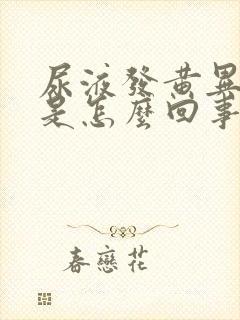 尿液發黃是
是怎麼回事
春戀花